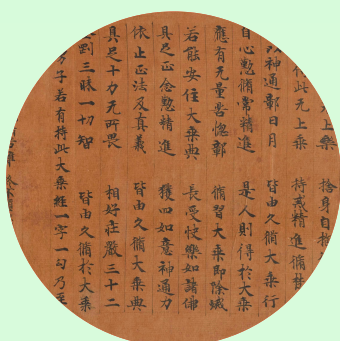 上樂 捨身自捨
持此无上乘 持戒精進脩
神通鄣日月 皆由久脩大乘行
自心懃脩常精進 是人則得於大乘
應有无量惡惚鄣 脩習大乘即除滅
若能安住大乘典 長受快樂如諸佛
具足正念懃精進 獲四如意神通力
依止正法及真義 皆由久脩大乘典
具足十力无所畏 相好莊嚴三十二
剛三昧一切智 皆由久脩於大乘
子若有持此大乘經一字一句乃至